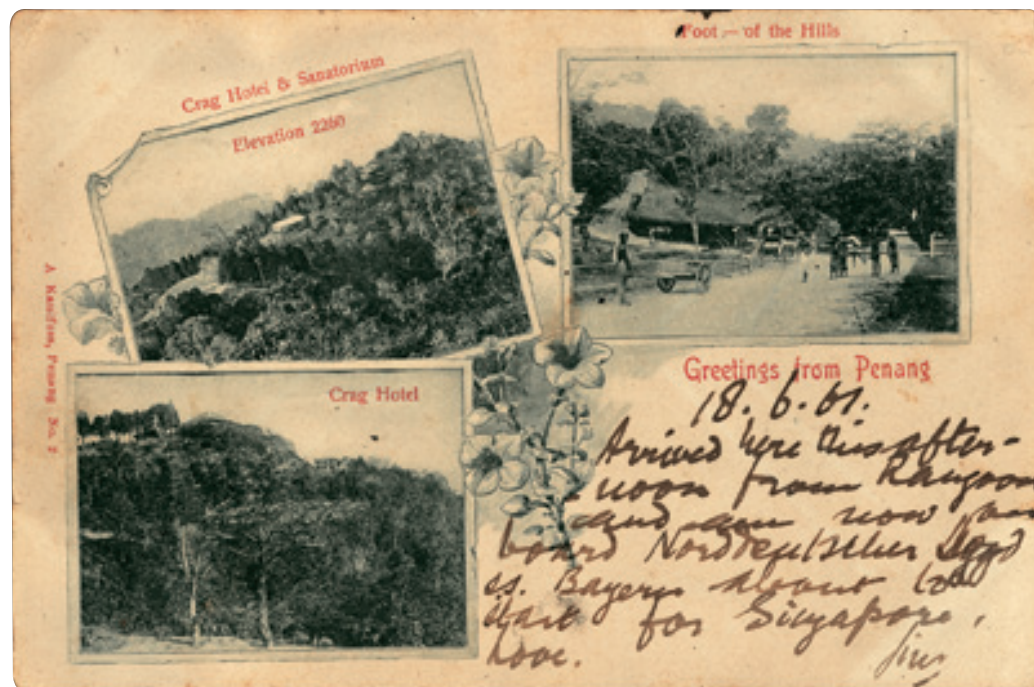 Crag Hotel & Sanatorium
Elevation 2260
Foot - of the Hills
Crag Hotel
A Kaulfuss, Penang No. 2
Greetings from Penang
18. 6. 01.
Arrived here this after-
noon from Rangoon
and am now on
board Norddeutscher Lloyd
ss. Bayern about to
start for Singapore,
Love.